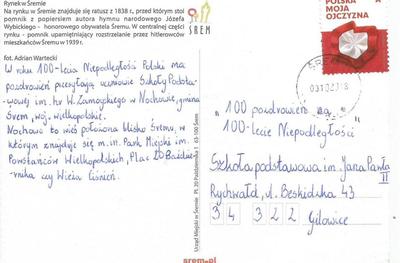 Rynek w Śremie
Na rynku w Śremie znajduje się ratusz z 1838 r., przed którym stoi
pomnik z popiersiem autora hymnu narodowego Józefa
Wybickiego - honorowego obywatela Śremu. W centralnej części
rynku - pomnik upamiętniający rozstrzelanie przez hitlerowców
mieszkańców Śremu w 1939 r.
fot. Adrian Wartecki
W roku 100-lecia Niepodległości Polski ma
pozdrowień przesyłają uczniowie Szkoły Podsta-
wowej im. hr W. Zamoyskiego w Nochowie, gmina
Śrem, woj. wielkopolskie.
Nochowo to wieś położona blisko Śremu, w
którym znajduje się m.in. Park Miejski im.
Powstańców Wielkopolskich, Plac 20 Paździer-
nika czy Wieża Ciśnień.
Urząd Miejski w Śremie Pl. 20 Października 1 63-100 Śrem
ŚREM
srem.pl
POLSKA
MOJA
OJCZYZNA
ŚREM
"100 pozdrowień na
100-lecie Niepodległości"
Szkoła podstawowa im. Jana Pawła
II
Rychwałd, ul. Beskidzka 43
34 322 Gilowice